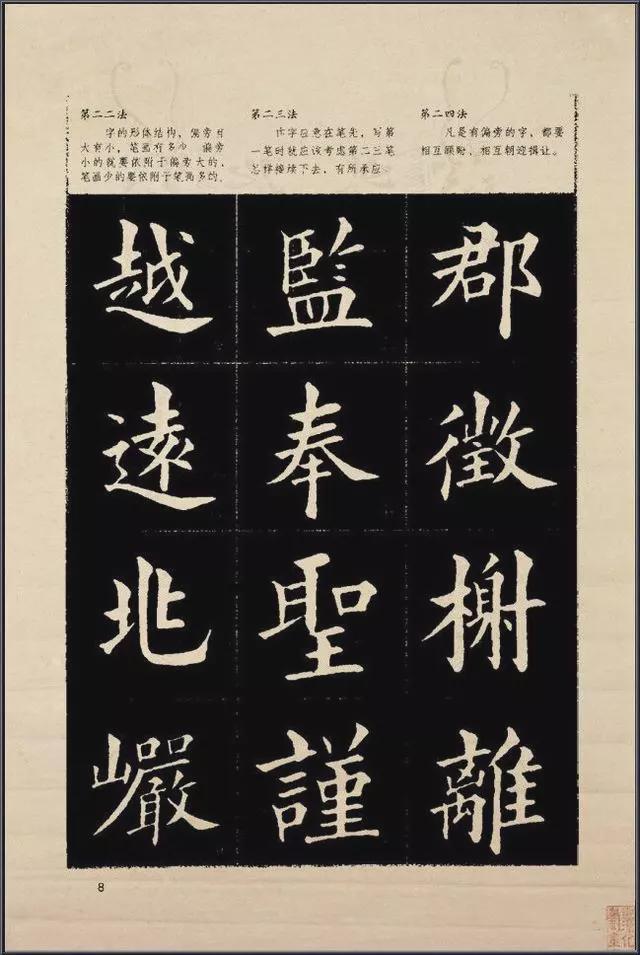 第二二法
字的形体结构，偏旁有
大有小，笔画有多少，偏旁
小的就要依附于偏旁大的，
笔画少的要依附于笔画多的。
第二三法
作字应意在笔先，写第
一笔时就应该考虑第二三笔
怎样接续下去，有所承应
第二四法
凡是有偏旁的字，都要
相互顾盼，相互朝迎揖让。
越監郡
遠奉徵
兆聖榭
巗謹離
8